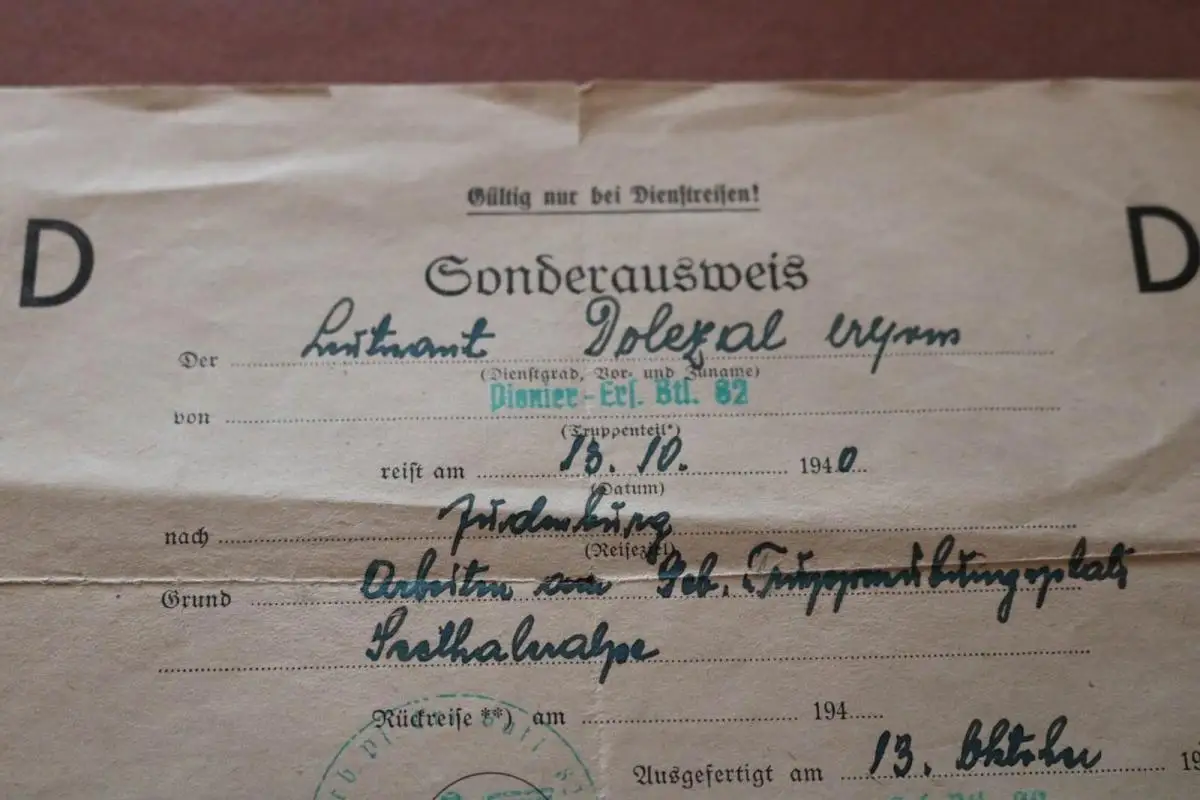 Gültig nur bei Dienstreisen!
D
Sonderausweis
D
Der Leutnant Dolezal
(Dienstgrad, Vor- und Zuname)
von Pionier-Ers. Btl. 82
(Truppenteil*)
reist am 13. 10. 1940
(Datum)
nach Judenburg
(Reiseziel)
Grund Arbeiten am Geb. Truppenübungsplatz
Seethaleralpe
Rückreise **) am 194
Ausgefertigt am 13. Oktober 19